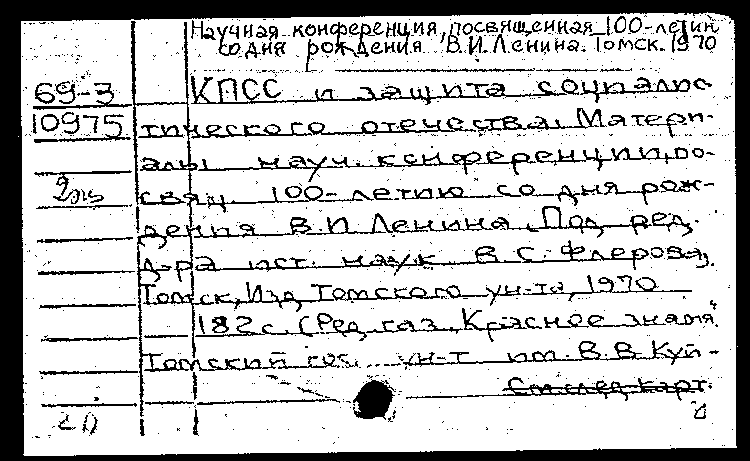 Научная конференция, посвященная 100-летию
со дня рождения В.И. Ленина. Томск. 1970
69-3 КПСС и защита социалис-
10975 тического отечества. Матери-
алы науч. конференции, по-
2эк свящ. 100-летию со дня рож-
дения В.И. Ленина. Под ред.
д-ра ист. наук В.С. Флерова,
Томск, Изд. Томского ун-та, 1970
182 с. (Ред. газ. „Красное знамя".
Томский гос. ун-т им. В.В. Куй-
См. след. карт.